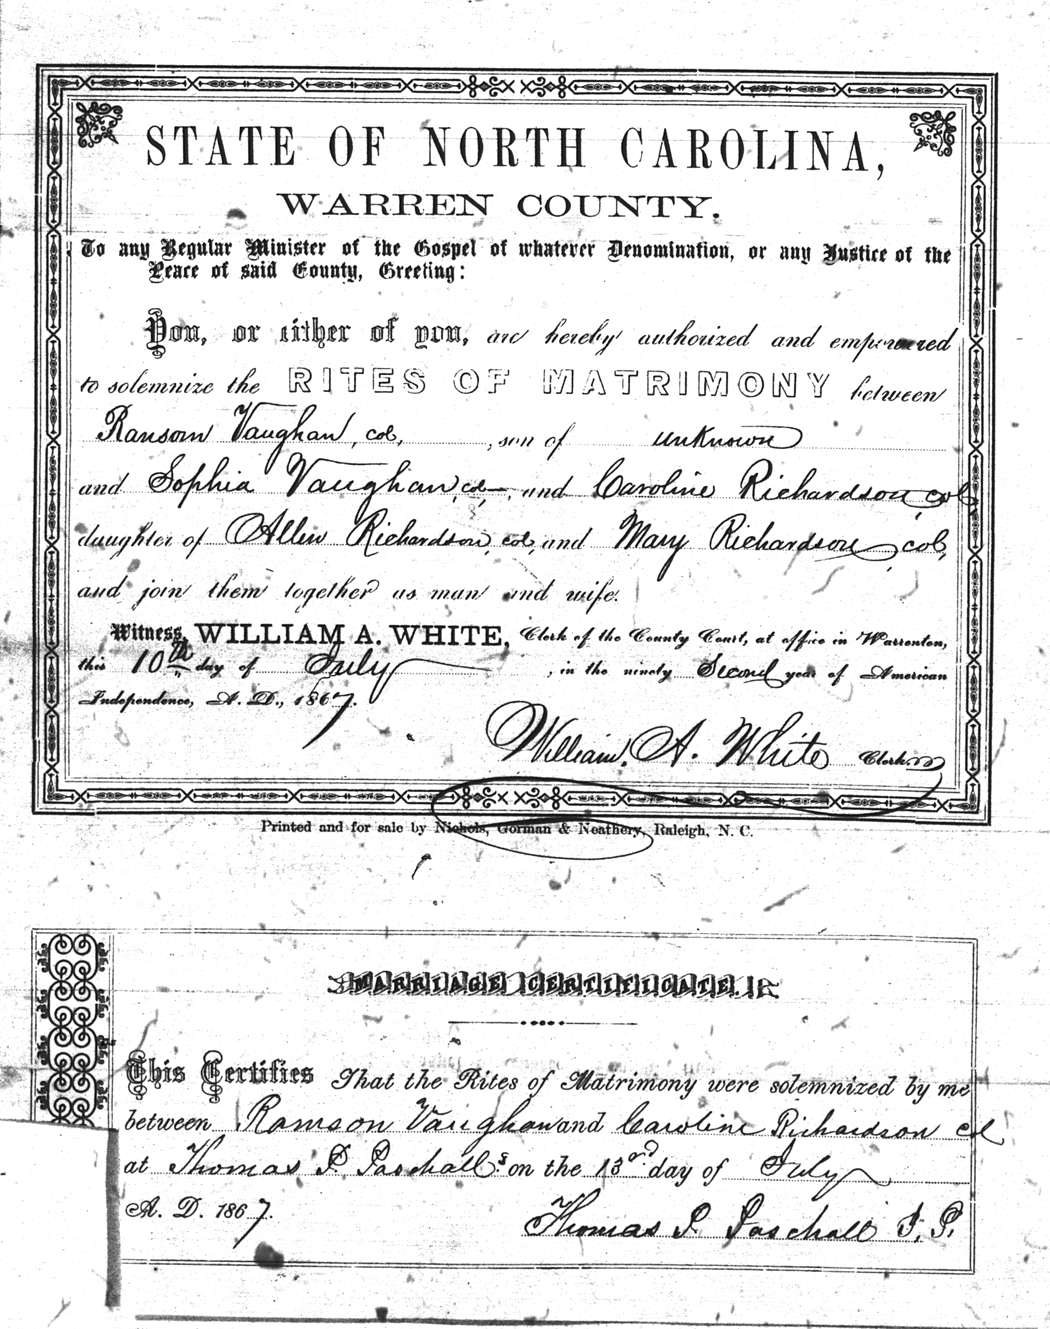 STATE OF NORTH CAROLINA,
WARREN COUNTY.
To any Regular Minister of the Gospel of whatever Denomination, or any Justice of the
Peace of said County, Greeting:
You, or either of you, are hereby authorized and empowered
to solemnize the RITES OF MATRIMONY between
Ransom Vaughan, col, , son of unknown
and Sophia Vaughan, col , and Caroline Richardson col,
daughter of Allen Richardson, col, and Mary Richardson, col,
and join them together as man and wife.
Witness, WILLIAM A. WHITE, Clerk of the County Court, at office in Warrenton,
this 10th day of July , in the ninety Second year of American
Independence, A. D., 1867.
William A. White Clerk
Printed and for sale by Nichols, Gorman & Neathery, Raleigh, N. C.
MARRIAGE CERTIFICATE.
This Certifies That the Rites of Matrimony were solemnized by me
between Ramson Vaughan and Caroline Richardson col
at Thomas P Paschall's on the 13rd day of July
A. D. 1867.
Thomas P. Paschall J. P.